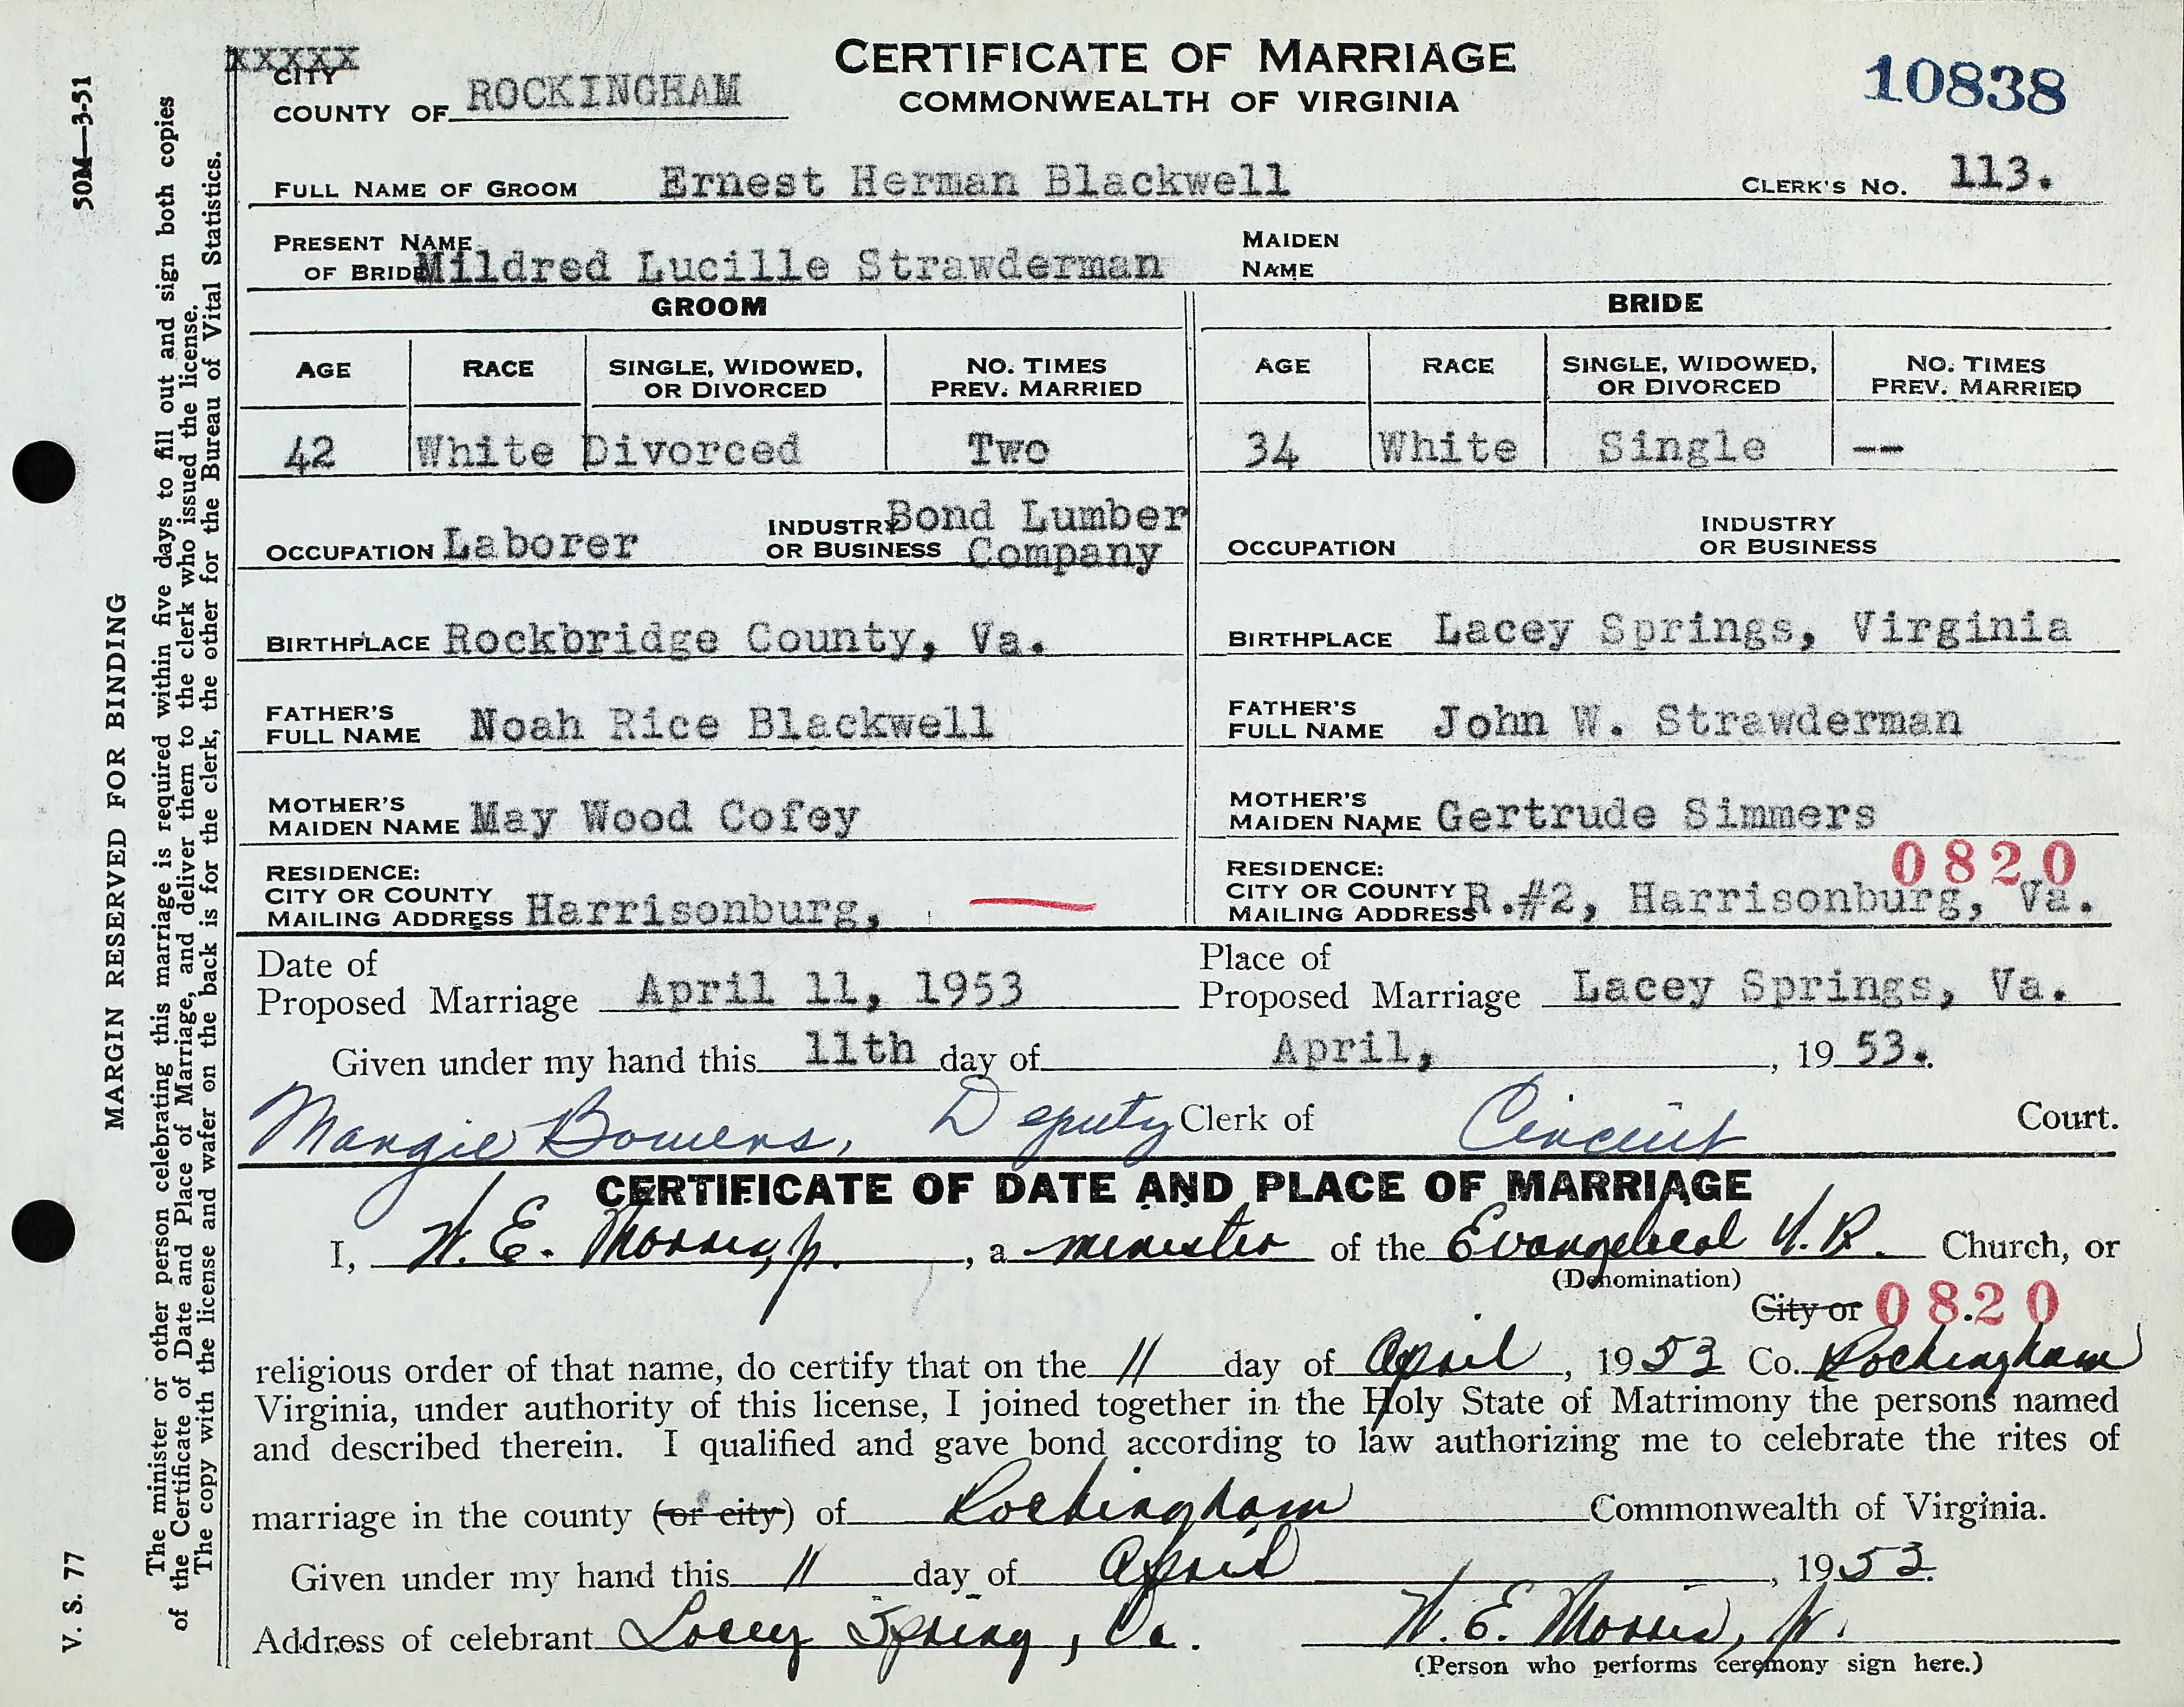 XXXXX
CITY
COUNTY OF ROCKINGHAM
CERTIFICATE OF MARRIAGE
COMMONWEALTH OF VIRGINIA
10838
FULL NAME OF GROOM Ernest Herman Blackwell CLERK'S NO. 113.
PRESENT NAME OF BRIDE Mildred Lucille Strawderman MAIDEN NAME
GROOM BRIDE
AGE RACE SINGLE, WIDOWED, OR DIVORCED NO. TIMES PREV. MARRIED AGE RACE SINGLE, WIDOWED, OR DIVORCED NO. TIMES PREV. MARRIED
42 White Divorced Two 34 White Single --
OCCUPATION Laborer INDUSTRY OR BUSINESS Bond Lumber Company OCCUPATION INDUSTRY OR BUSINESS
BIRTHPLACE Rockbridge County, Va. BIRTHPLACE Lacey Springs, Virginia
FATHER'S FULL NAME Noah Rice Blackwell FATHER'S FULL NAME John W. Strawderman
MOTHER'S MAIDEN NAME May Wood Cofey MOTHER'S MAIDEN NAME Gertrude Simmers
0820
RESIDENCE: CITY OR COUNTY MAILING ADDRESS Harrisonburg, RESIDENCE: CITY OR COUNTY MAILING ADDRESS R.#2, Harrisonburg, Va.
Date of Proposed Marriage April 11, 1953 Place of Proposed Marriage Lacey Springs, Va.
Given under my hand this 11th day of April, , 19 53.
Margie Bowers, Deputy Clerk of Circuit Court.
CERTIFICATE OF DATE AND PLACE OF MARRIAGE
I, W. E. Morris, Jr. , a minister of the Evangelical U. B. Church, or
(Denomination)
City or 08.20
religious order of that name, do certify that on the 11 day of April , 1953 Co. Rockingham
Virginia, under authority of this license, I joined together in the Holy State of Matrimony the persons named
and described therein. I qualified and gave bond according to law authorizing me to celebrate the rites of
marriage in the county (or city) of Rockingham Commonwealth of Virginia.
Given under my hand this 11 day of April , 1953.
Address of celebrant Lacey Spring, Va. W. E. Morris, Jr.
(Person who performs ceremony sign here.)
V. S. 77
MARGIN RESERVED FOR BINDING
50M—3-51
The minister or other person celebrating this marriage is required within five days to fill out and sign both copies
of the Certificate of Date and Place of Marriage, and deliver them to the clerk who issued the license.
The copy with the license and wafer on the back is for the clerk, the other for the Bureau of Vital Statistics.